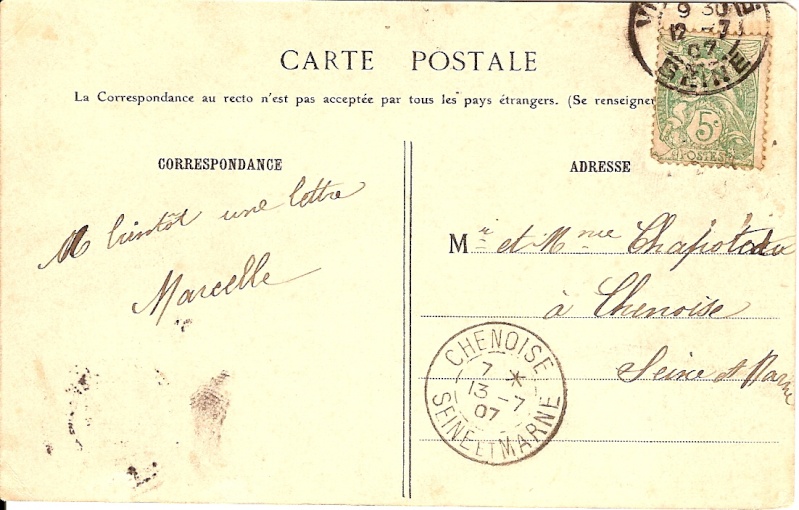 9 30
12 -7
07
SEINE
5c
POSTES
CARTE POSTALE
La Correspondance au recto n'est pas acceptée par tous les pays étrangers. (Se renseigner
CORRESPONDANCE
A bientôt une lettre
Marcelle
ADRESSE
Mr et Mme Chapoteau
à Chenoise
Seine et Marne
CHENOISE
7 *
13 -7
07
SEINE ET MARNE